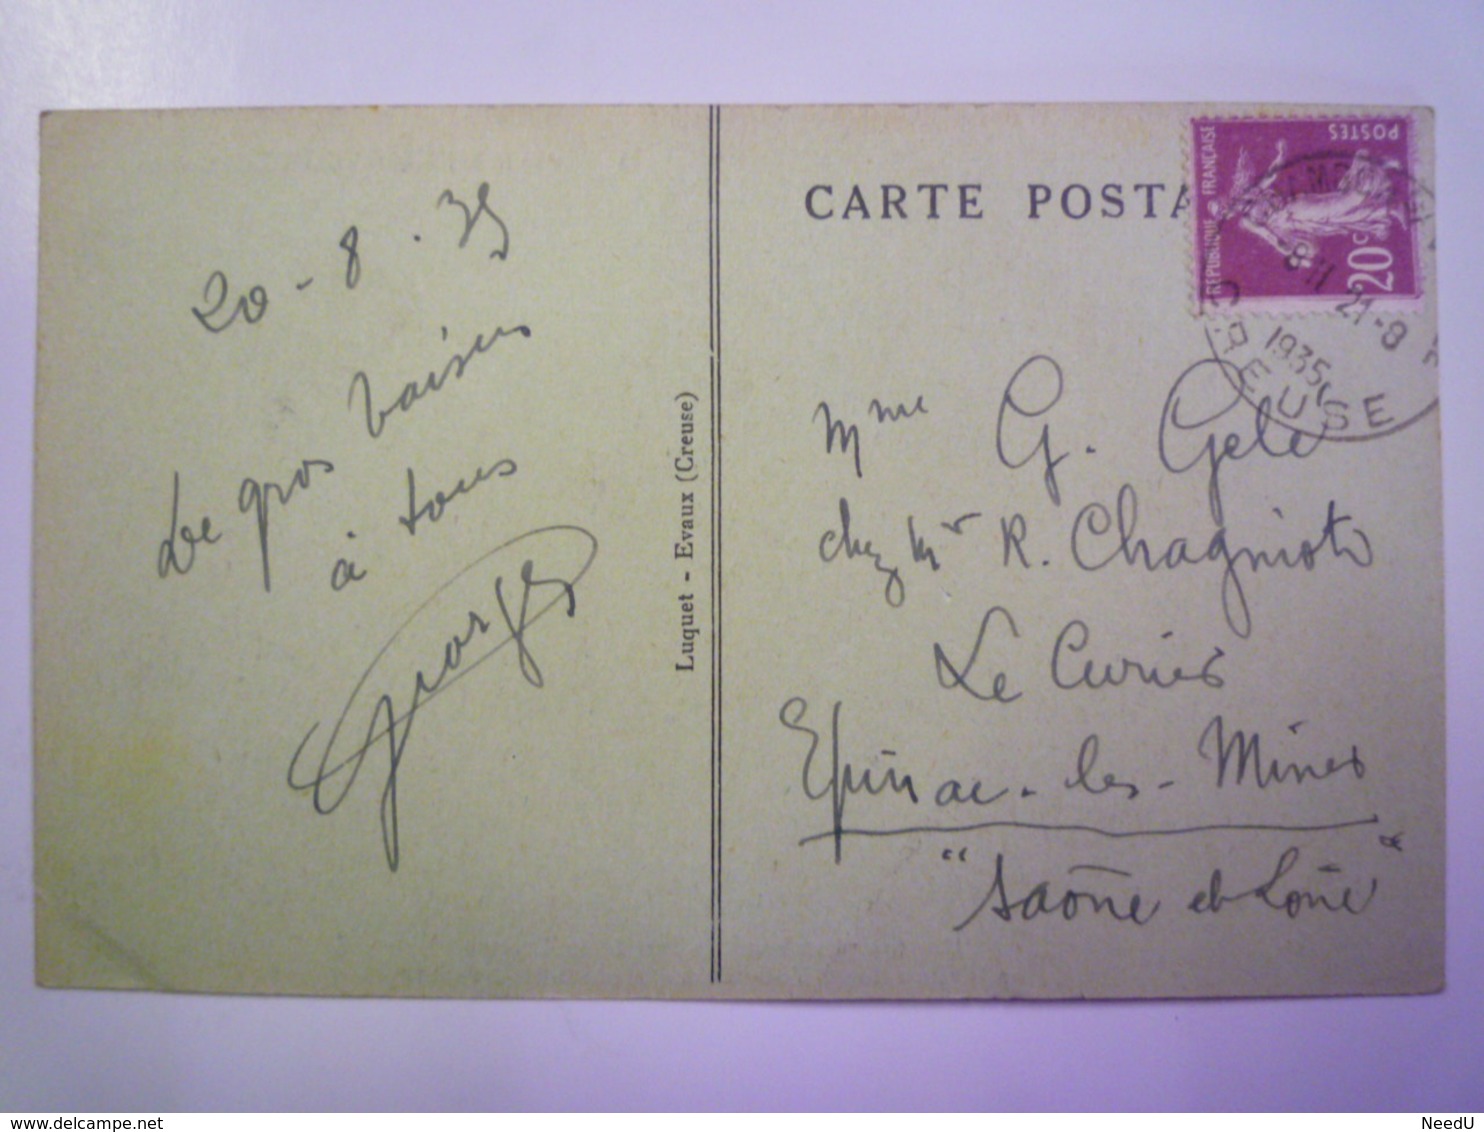 20-8.35
De gros baisers
à tous
Georges
Luquet - Evaux (Creuse)
CARTE POSTA
RÉPUBLIQUE FRANÇAISE
POSTES
20c
8-11 21-8
1935
CREUSE
Mme G. Gele
chez Mr R. Chagniot
Le Curier
Epinac-les-Mines
"Saône et Loire"
www.delcampe.net
NeedU